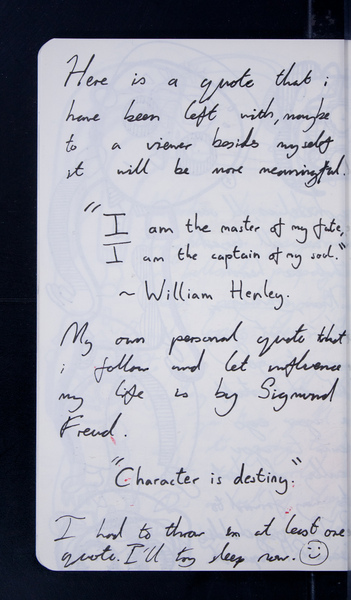 Here is a quote that i
have been left with, maybe
to a viewer besides myself
it will be more meaningful.
"I am the master of my fate,
I am the captain of my soul."
~ William Henley.
My own personal quote that
i follow and let influence
my life is by Sigmund
Freud.
"Character is destiny."
I had to throw in at least one
quote. I'll try sleep now.